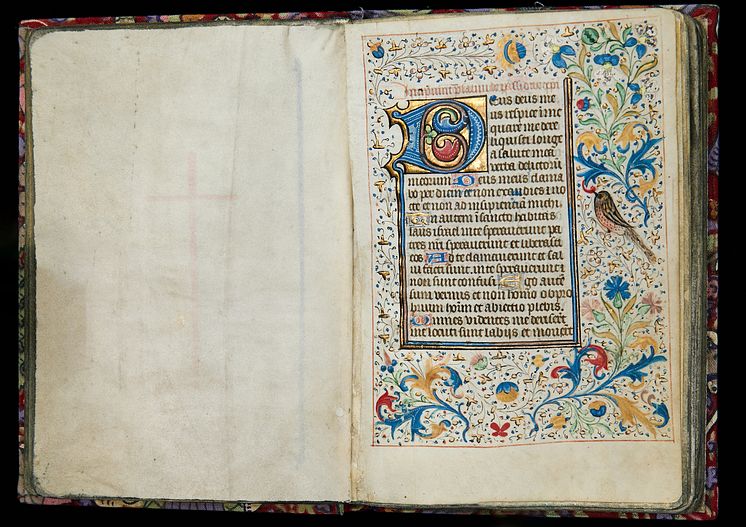 Incipiunt psalmi de passione xpi
Deus deus me
us respice i me
quare me dere
liquisti longe
a salute mea
verba delictorū
meorum Deus meus clama
bo per diem et non exaudies i no
cte et non ad insipientiā michi
Tu autem i sancto habitas
laus israel in te speraverunt pa
tres nri speraverunt et liberasti
eos Ad te clamaverunt et sal
vi facti sunt in te speraverunt i
non sunt confusi Ego autē
sum vermis et non homo obpro
brium hoīm et abiectio plebis
Omnes videntes me deriserūt
me locuti sunt labijs et moverūt